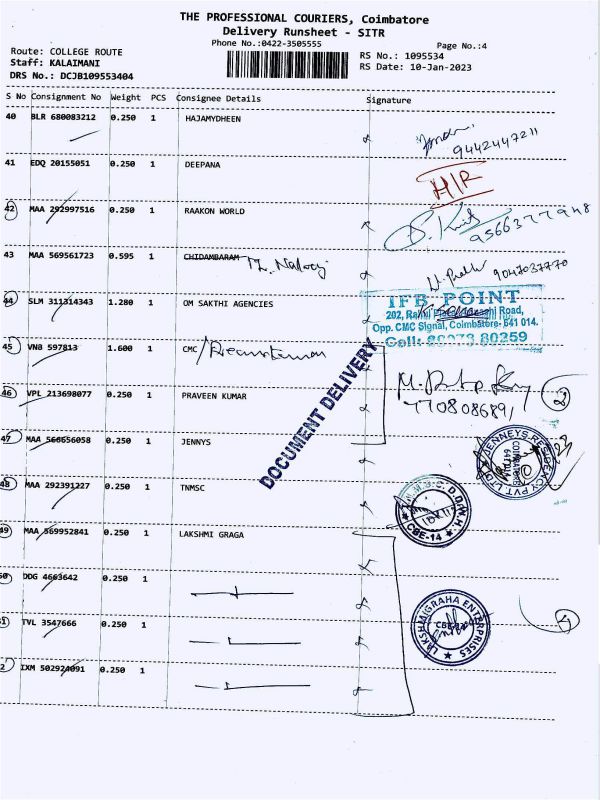 THE PROFESSIONAL COURIERS, Coimbatore
Delivery Runsheet - SITR
Phone No.:0422-3505555
Page No.:4
Route: COLLEGE ROUTE
Staff: KALAIMANI
DRS No.: DCJB109553404
RS No.: 1095534
RS Date: 10-Jan-2023
S No Consignment No Weight PCS Consignee Details Signature
40 BLR 680083212 0.250 1 HAJAMYDHEEN
9442447211
41 EDQ 20155051 0.250 1 DEEPANA
H/R
42 MAA 292997516 0.250 1 RAAKON WORLD
9566377948
43 MAA 569561723 0.595 1 CHIDAMBARAM
9047037770
44 SLM 311314343 1.280 1 OM SAKTHI AGENCIES
IFB POINT
202, Road,
Opp. CMC Signal, Coimbatore- 641 014.
Cell: 80259
45 VNB 597813 1.600 1 CMC/
DOCUMENT DELIVERY
46 VPL 213698077 0.250 1 PRAVEEN KUMAR
2
47 MAA 566656058 0.250 1 JENNYS
48 MAA 292391227 0.250 1 TNMSC
CBE-14
49 MAA 569952841 0.250 1 LAKSHMI GRAGA
DDG 4663642 0.250 1
TVL 3547666 0.250 1
LAKSHMIGRAHA ENTERPRISES
4
2 IXM 502924091 0.250 1